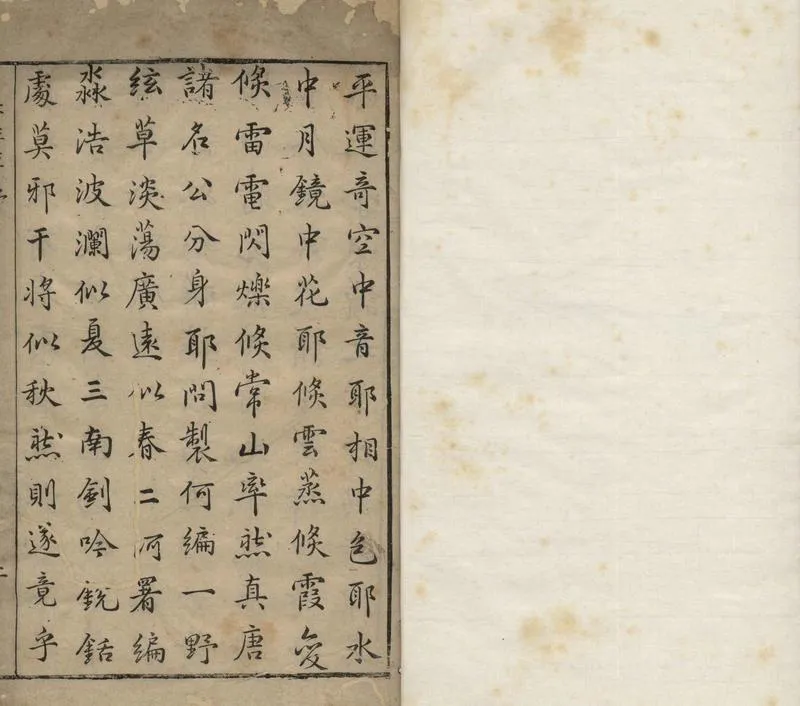 平運竒空中音耶相中色耶水
中月鏡中花耶倐雲蒸倐霞変
倐雷電閃爍倐常山率然真唐
諸名公分身耶問製何編一野
絃草淡蕩廣遠似春二河署編
淼浩波瀾似夏三南劍吟銳銛
處莫邪干將似秋然則遂竟乎